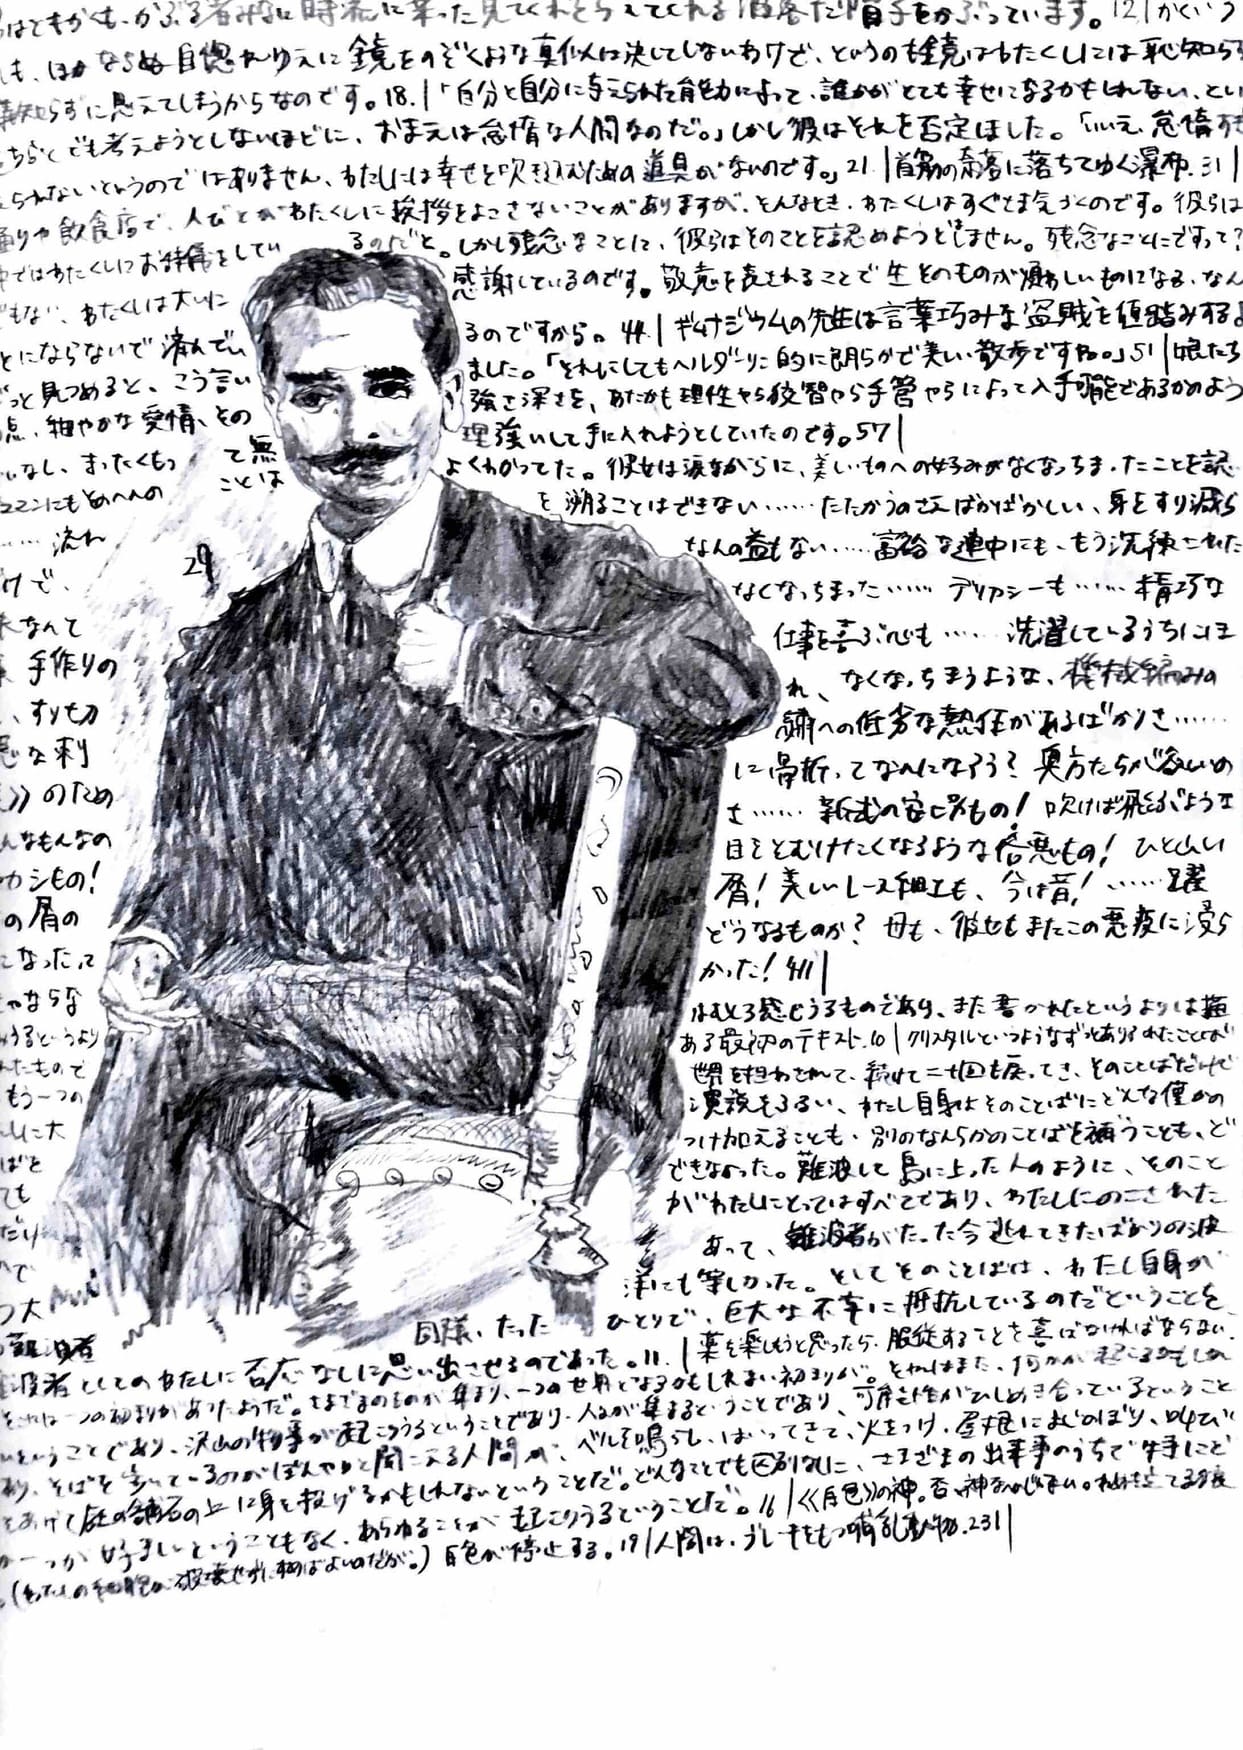 はともかくも、かぶる者みなに時流に乗った見てくれをとらえてくれる
帽子をかぶっています。12|かくいう
も、ほかならぬ自惚れゆえに鏡をのぞくような真似は決してしないわけで、というのも鏡はわたくしには恥知らず
らずに思えてしまうからなのです。18.|「自分と自分に与えられた能力によって、誰かがとても幸せになるかもしれない、とい
ちらとでも考えようとしないほどに、おまえは怠惰な人間なのだ。」しかし彼はそれを否定しました。「いいえ、怠惰
られないというのではありません、わたしには幸せを吹き込むための道具がないのです。」21.|首筋の奈落に落ちてゆく瀑布.31|
通りや飲食店で、人びとがわたくしに挨拶をよこさないことがありますが、そんなとき、わたくしはすぐさま気づくのです。彼らは
中ではわたくしにお辞儀をしてい
るのだと。しかし残念なことに、彼らはそのことを認めようとしません。残念なことにですって?
でもない、わたくしは大いに
感謝しているのです。敬意を表されることで生そのものが煩わしいものになる、なん
とにならないで済んでい
るのですから。44.|ギムナジウムの先生は言葉巧みな盗賊を値踏みするよ
っと見つめると、こう言い
ました。「それにしてもヘルダーリン的に朗らかで美しい散歩ですね。」51|娘たち
点、細やかな愛情、その
強さ深さを、あたかも理性やら狡智やら手管やらによって入手可能であるかのよう
いなし、まったくもっ
て無
理強いして手に入れようとしていたのです。57|
ことは
よくわかってた。彼女は涙ながらに、美しいものへの好みがなくなっちまったことを認
……流れ
を溯ることはできない……たたかうのさえばかばかしい、身をすり減ら
29
なんの益もない……富裕な連中にも、もう洗練された
けで、
なくなっちまった……デリカシーも……精巧な
なんて
仕事を喜ぶ心も……洗濯しているうちにほ
手作りの
れ、なくなっちまうような、機械編みの
、すり切
繍への低劣な熱狂があるばかりさ……
な刺
に骨折ってなんになろう?奥方たちが
》のため
さ……新式の安ぴかもの!吹けば飛ぶような
んなもんなの
目をそむけたくなるような
もの!ひと山い
カシもの!
屑!美しいレース細工も、今は昔!……
の屑の
どうなるものか?母も、彼女もまたこの悪疫に浸ら
になったって
かった!411|
ゃならな
はむしろ感じうるものであり、また書かれたというよりは
うるというより
ある最初のテキスト.10|クリスタルというようなずっとありふれたことば
たもので
世界を担わされて、続けて二十回も戻ってき、そのことばだけで
もう一つの
演説をふるい、わたし自身はそのことばにどんな僅かの
に大
つけ加えることも、別のなんらかのことばを補うことも、ど
ばを
できなかった。難波して島に上った人のように、そのこと
ても
がわたしにとってはすべてであり、わたしにのこされた
だけ
あって、難波者がたった今逃れてきたばかりの波
で
洋にも等しかった。そしてそのことばは、わたし自身が
つ大
同様、たった
ひとりで、巨大な不幸に抵抗しているのだということを、
者としてのわたしに否応なしに思い出させるのであった。11.|薬を楽しもうと思ったら、服従することを喜ばなければならない.
それは一つの初まりがあったようだ。さまざまのものが集まり、一つの世界となるかもしれない初まりが。それはまた、何かが起こるかもしれ
いということであり、沢山の物事が起こりうるということであり、人々が集まるということであり、可能性がひしめき合っているということ
あり、そばを歩いているのがぼんやりと聞こえる人間が、ベルを鳴らし、はいってきて、火をつけ、屋根によじのぼり、叫び
をあげて庭の鋪石の上に身を投げるかもしれないということだ。どんなことでも区別なしに、さまざまの出来事のうちで特にど
か一つが好ましいということもなく、あらゆることが起こりうるということだ。16|《白色》の神。否、神なんかじゃない。
。(わたしの
破壊せずにすめばよいのだが。)白色が停止する。19|人間は、うしろをもつ哺乳動物.231|